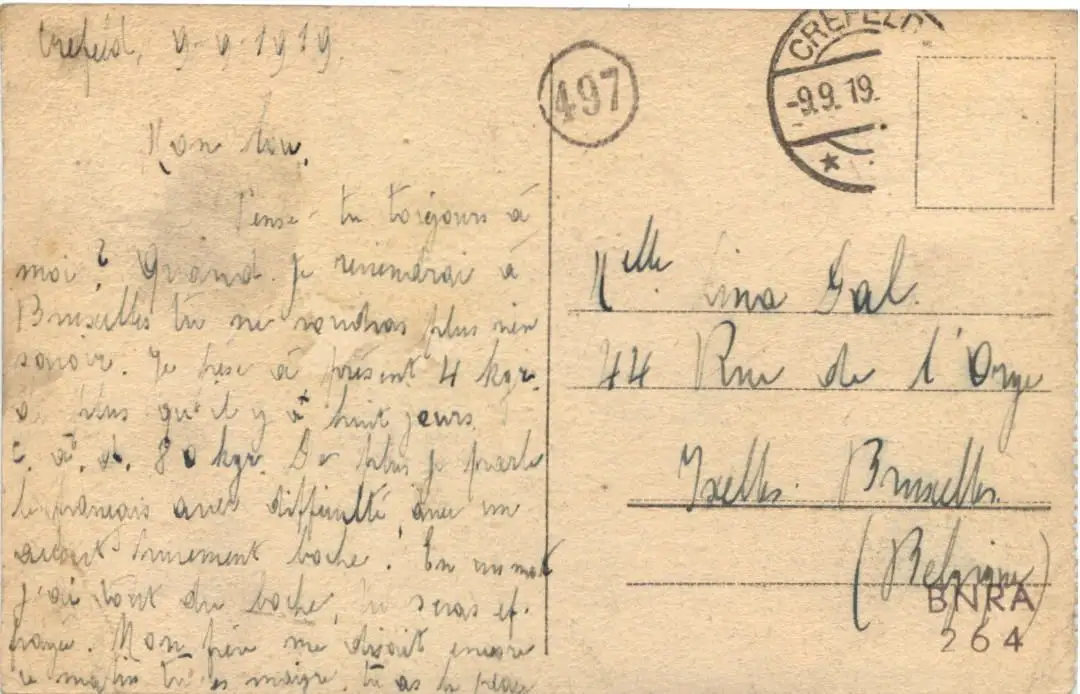 Crefeld, 9-9-1919.
Mon lou,
Pense-tu toujours à
moi? Quand je reviendrai à
Bruxelles tu ne voudras plus rien
savoir. Je pèse à présent 4 kgr.
de plus qu'il y a huit jours.
c. à. d. 80 kgr. De plus je parle
le français avec difficulté, avec un
accent purement boche! En un mot
j'ai tout du boche, tu seras ef-
frayée. Mon père me disait encore
ce matin tu es maigre, tu as
497
CREFELD
-9.9.19.
Melle Lina Gal.
44 Rue de l'Orge
Ixelles Bruxelles.
(Belgique)
BNRA
264